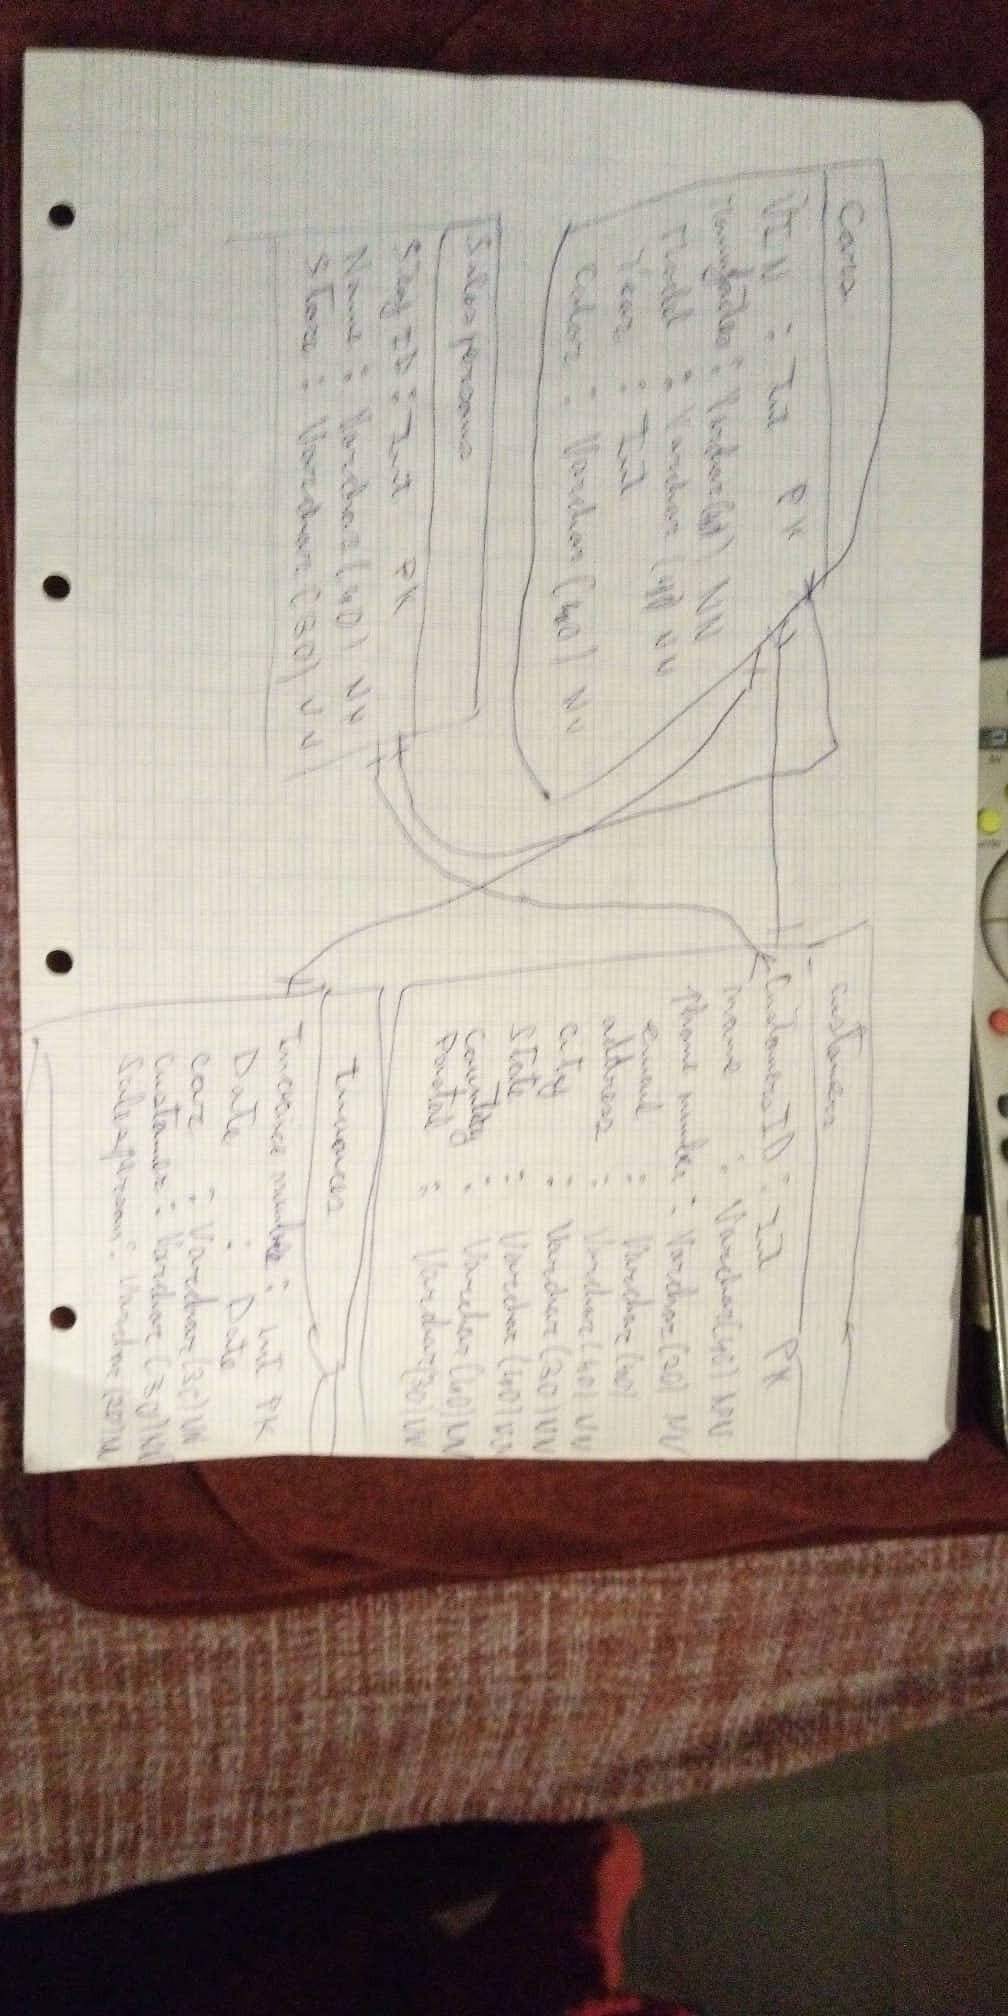 Cars
VIN : Int PK
Model : Varchar (40) NN
Year : Int
Color : Varchar (40) NN
Salespersons
Staff ID : Int PK
Name : Varchar (40) NN
Store : Varchar (30) NN
Customers
CustomersID : Int PK
name : Varchar (40) NN
Phone number : Varchar (30) NN
email : Varchar (40)
address : Varchar (40) NN
city : Varchar (30) NN
State : Varchar (40) NN
Country : Varchar (40) NN
Postal : Varchar (30) NN
Invoices
Invoice number : int PK
Date : Date
car : Varchar (30) NN
Customer : Varchar (30) NN
Salesperson : Varchar (30) NN